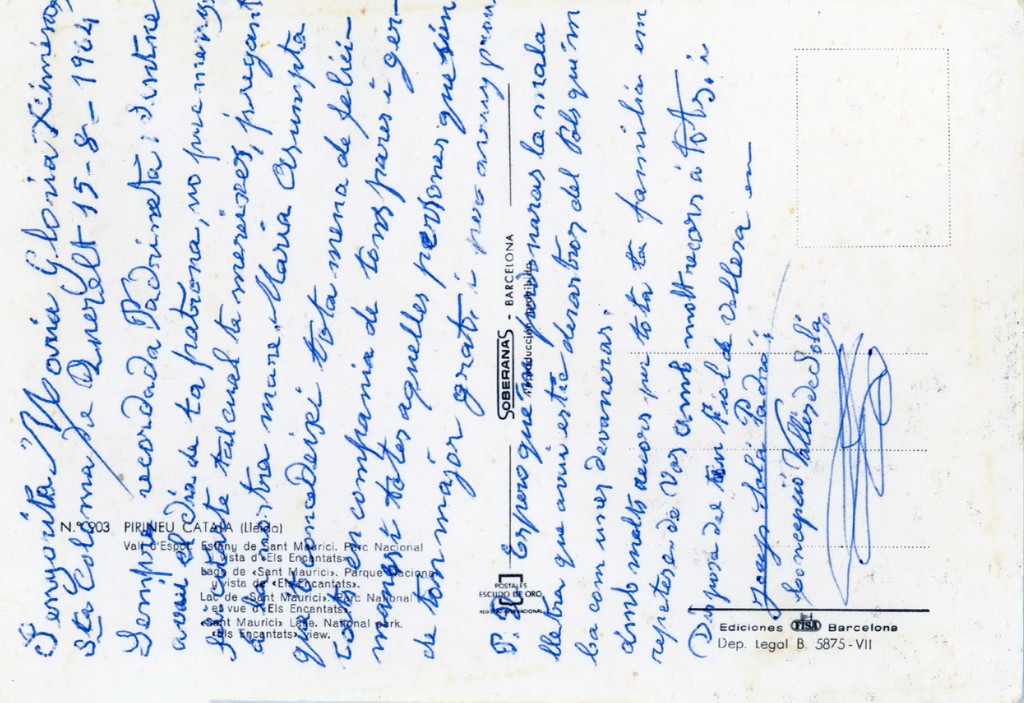 Senyorita Maria Gloria Ximénez
Sta Coloma de Queralt 15-8-1964
Sempre recordada Padrineta: Sintne
avui el dia de ta patrona, no puc menys
felicitarte tal cual te mereixes, pregant
a nostra mare Maria Asumpta
que t concedeixi tota mena de felici-
tats en compania de tons pares i ger-
mans i totes aquelles persones que sien
de ton major grat, i
P. D. Espero que em perdonaras la mala
lletra que avui estic desastros del Pols quim
ba com unes devaneras.
Amb molts recors per tota ta familia en
repetees de Vos amb molt recors a tots, i
Disposa del ton fiol de Vallera en
Josep Solá Padró,
Concepció Vallés de Solá
N.º 903 PIRINEU CATALA (Lleida)
Vall d'Espot. Estany de Sant Maurici. Parc Nacional
i vista d'«Els Encantats».
Lago de «Sant Maurici». Parque Nacional
y vista de «Els Encantats».
Lac de «Sant Maurici». Parc National
et vue d'«Els Encantats».
«Sant Maurici» Lake. National park.
«Els Encantats» view.
SOBERANAS - BARCELONA
Reproducción prohibida
POSTALES
ESCUDO DE ORO
Ediciones FISA Barcelona
Dep. Legal B. 5875-VII